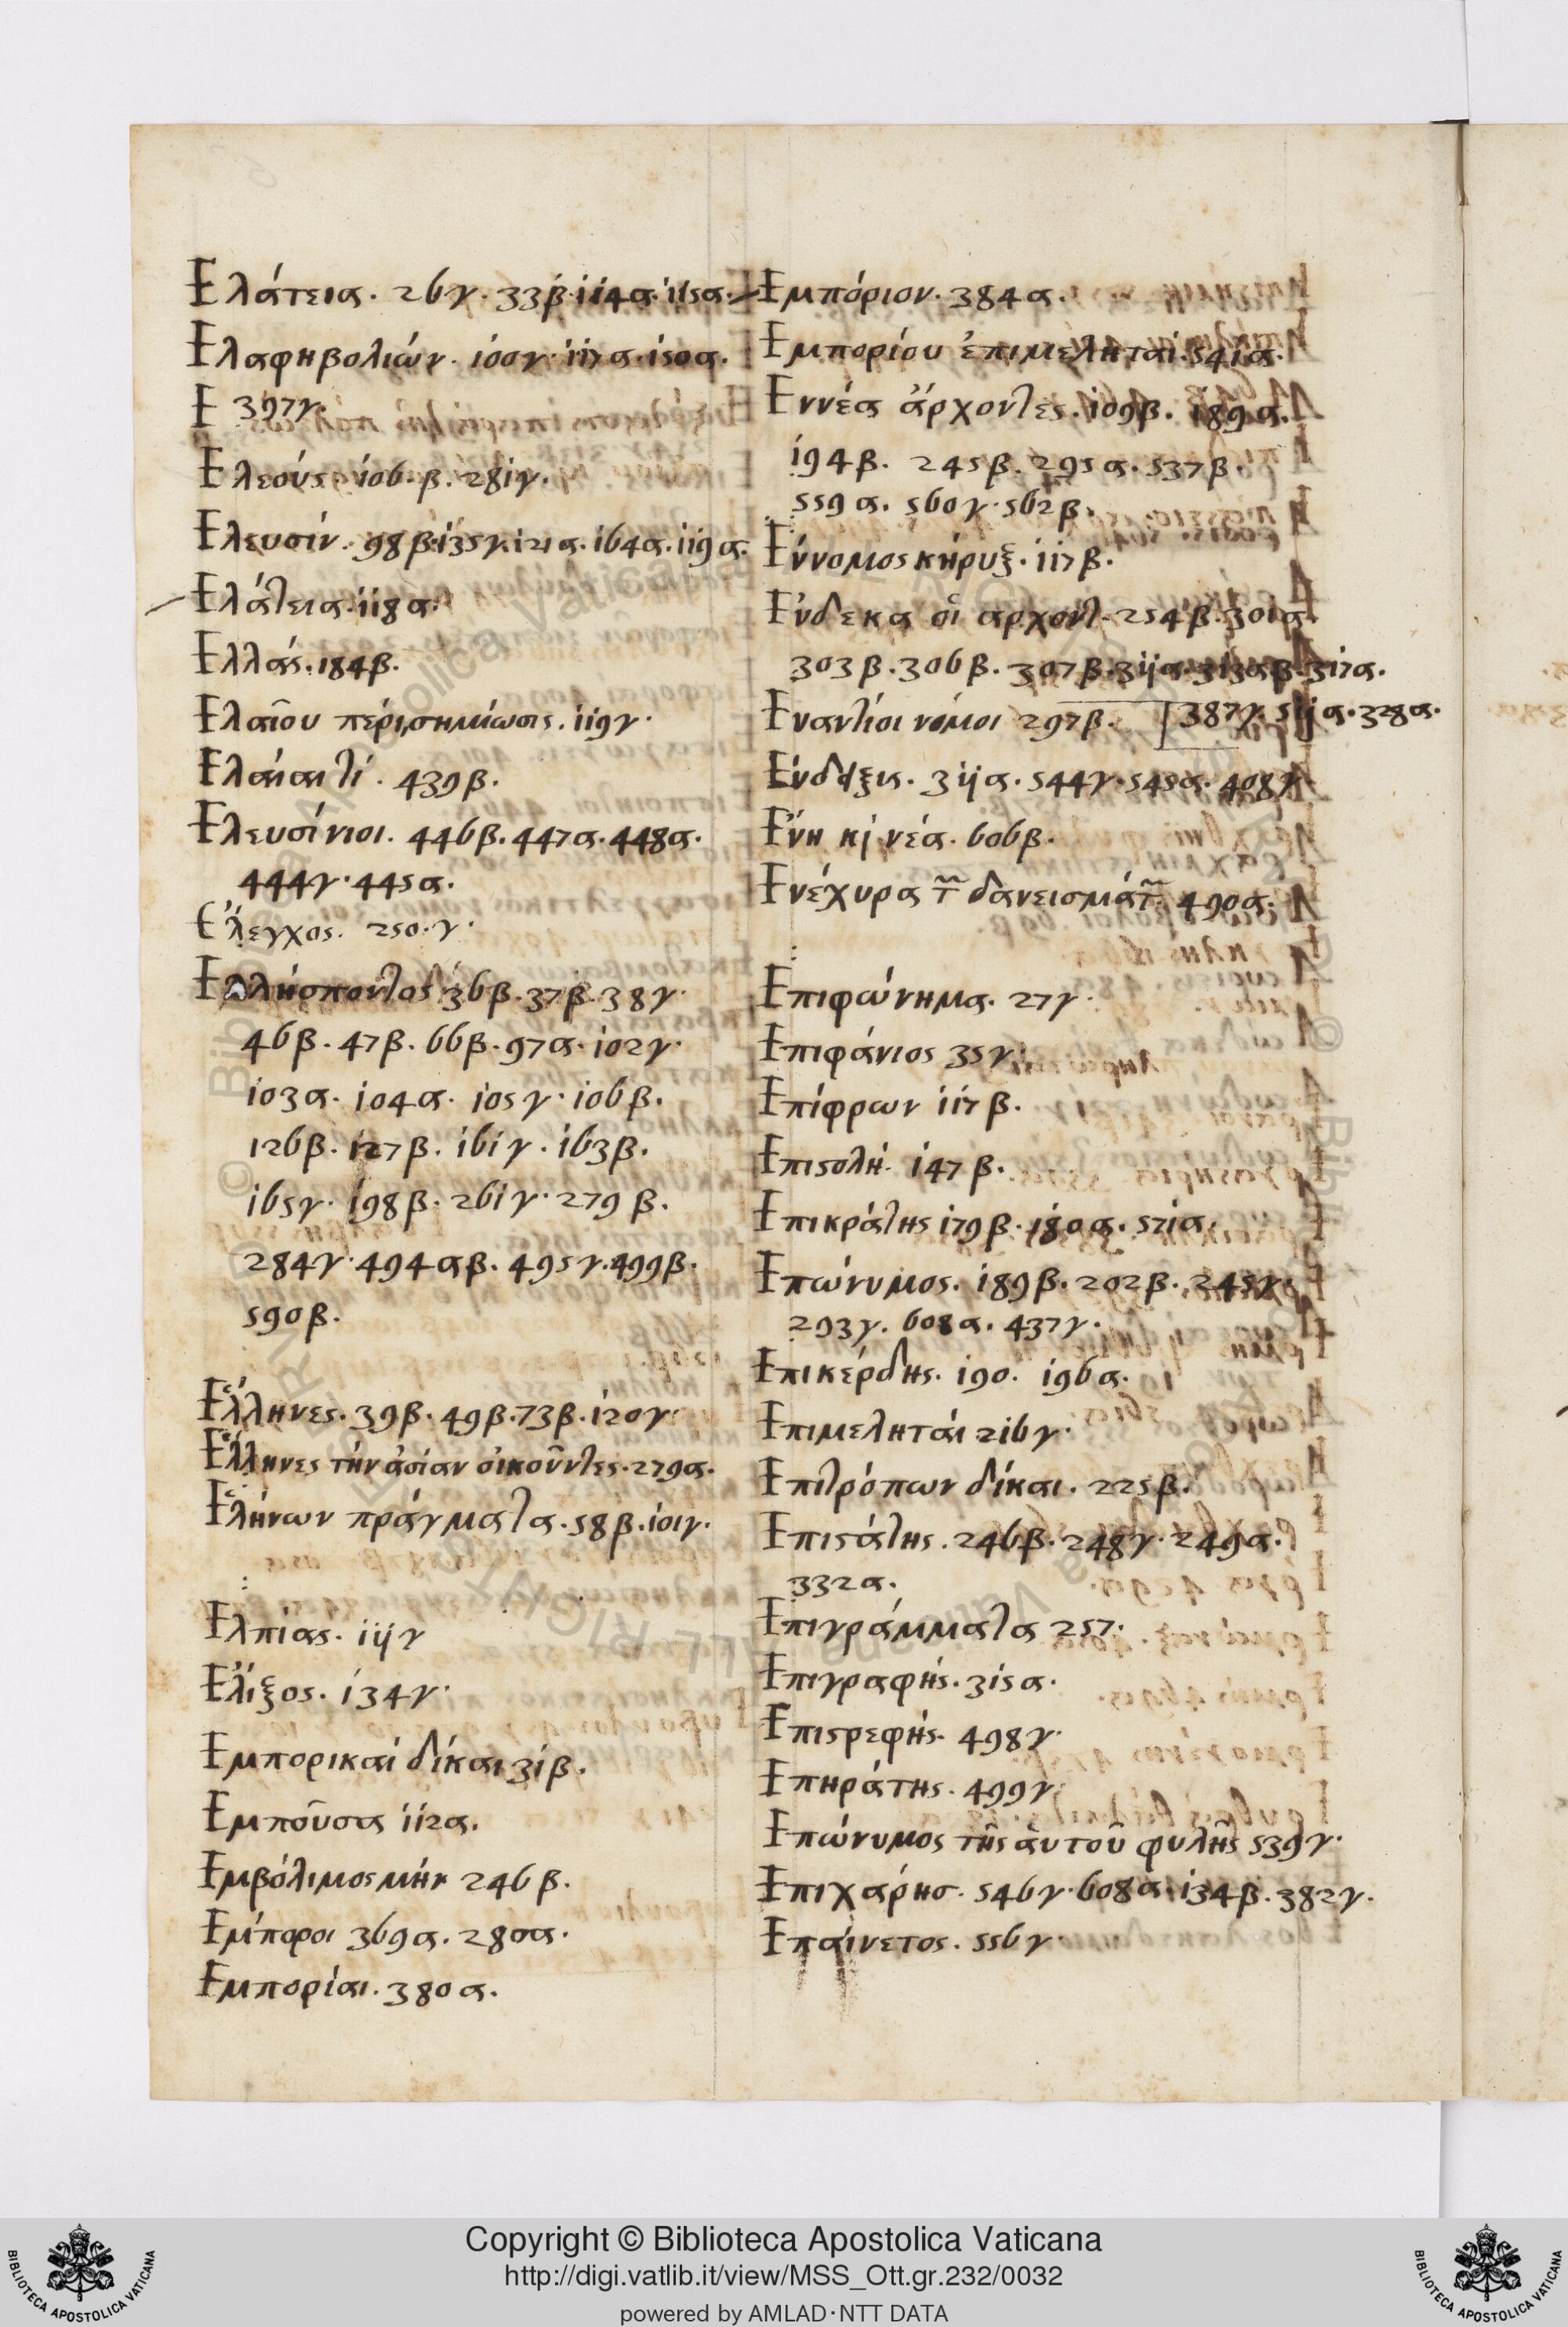 Ελάτεια. 26γ. 33β. 114α. 115α.
Ελαφηβολιών. 100γ. 117α. 150α.
Ε 397γ.
Ελεούς 106.β. 281γ.
Ελευσίν. 98β. 135γ. 121α. 164α. 119α.
Ελάτεια. 118α.
Ελλάς. 184β.
Ελαῖου πέρι, σημείωσις. 119γ.
439β.
Ελευσίνιοι. 446β. 447α. 448α.
444γ. 445α.
Ἔλεγχος. 250.γ.
Ελλήσποντος 36β. 37β. 38γ.
46β. 47β. 66β. 97α. 102γ.
103α. 104α. 105γ. 106β.
126β. 127β. 161γ. 163β.
165γ. 198β. 261γ. 279β.
284γ. 494αβ. 495γ. 499β.
590β.
Ἕλληνες. 39β. 49β. 73β. 120γ.
Ἕλληνες τὴν ἀσίαν οἰκοῦντες. 279α.
Ἑλήνων πράγματα. 58β. 101γ.
Ελπίας. 111γ
Ελίξος. 134γ.
Εμπορικαί δίκαι 31β.
Εμποῦσα 112α.
Εμβόλιμος μήν 246β.
Εμποροι 369α. 280α.
Εμπορίαι. 380α.
Εμπόριον. 384α.
Εμπορίου ἐπιμεληταί. 541α.
Εννέα ἄρχοντες. 109β. 189α.
194β. 245β. 295α. 537β.
559α. 560γ. 562β.
Εύνομος κήρυξ. 117β.
Ενδεκα οἱ αρχοντ. 254β. 301α.
303β. 306β. 307β. 311α. 313αβ. 317α.
Εναντίοι νόμοι 297β. 387γ. 511α. 328α.
Ενδειξις. 311α. 544γ. 545α. 408γ.
Ἕνη κὶ νέα. 606β.
Ενέχυρα τῶν δανεισμάτων 490α.
Επιφώνημα. 27γ.
Επιφάνιος 35γ.
Επίφρων 117β.
Επιστολή. 147β.
Επικράτης 179β. 180α. 571α.
Επώνυμος. 189β. 202β. 245γ.
293γ. 608α. 437γ.
Επικέρδης. 190. 196α.
Επιμεληταί 216γ.
Επιτρόπων δίκαι. 225β.
Επιστάτης. 246β. 248γ. 249α.
332α.
Επιγράμματα 257.
Επιγραφής. 315α.
Επιστρεφής. 498γ.
Επηράτης. 499γ.
Επώνυμος τῆς ἁυτοῦ φυλῆς 539γ.
Επιχάρησ. 546γ. 608α. 134β. 382γ.
Επαίνετος. 556γ.
Copyright © Biblioteca Apostolica Vaticana
http://digi.vatlib.it/view/MSS_Ott.gr.232/0032
powered by AMLAD·NTT DATA
BIBLIOTECA APOSTOLICA VATICANA
BIBLIOTECA APOSTOLICA VATICANA